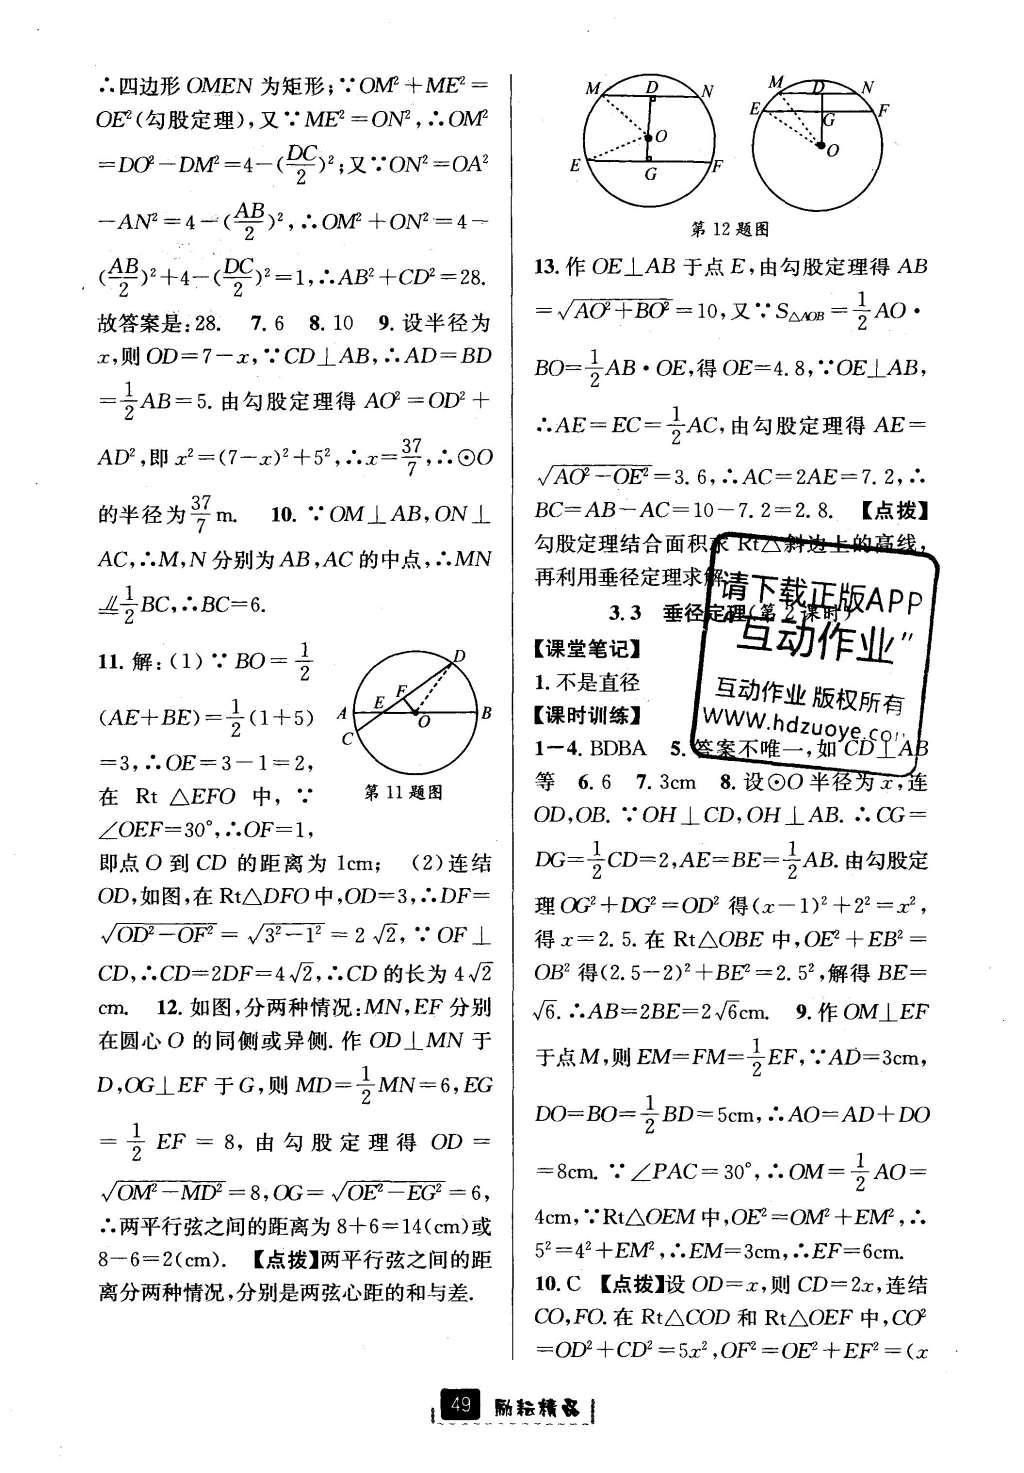 ∴四边形 OMEN 为矩形;∵OM²+ME²=
OE²(勾股定理),又∵ME²=ON²,∴OM²
=DO²-DM²=4-(DC/2)²;又∵ON²=OA²
-AN²=4-(AB/2)²,∴OM²+ON²=4-
(AB/2)²+4-(DC/2)²=1,∴AB²+CD²=28.
故答案是:28. 7. 6 8. 10 9. 设半径为
x,则 OD=7-x,∵CD⊥AB,∴AD=BD
=1/2AB=5. 由勾股定理得 AO²=OD²+
AD²,即 x²=(7-x)²+5²,∴x=37/7,∴⊙O
的半径为37/7m. 10. ∵OM⊥AB,ON⊥
AC,∴M,N 分别为 AB,AC 的中点,∴MN
⫽1/2BC,∴BC=6.
11. 解:(1)∵BO=1/2
(AE+BE)=1/2(1+5)
=3,∴OE=3-1=2,
在 Rt △EFO 中, ∵
∠OEF=30°,∴OF=1,
D
F
E
A
O
B
C
第 11 题图
即点 O 到 CD 的距离为 1cm; (2)连结
OD,如图,在 Rt△DFO 中,OD=3,∴DF=
√OD²-OF²=√3²-1²=2√2,∵OF⊥
CD,∴CD=2DF=4√2,∴CD 的长为 4√2
cm. 12. 如图,分两种情况:MN,EF 分别
在圆心 O 的同侧或异侧. 作 OD⊥MN 于
D,OG⊥EF 于 G,则 MD=1/2MN=6,EG
=1/2 EF=8, 由勾股定理得 OD=
√OM²-MD²=8,OG=√OE²-EG²=6,
∴两平行弦之间的距离为 8+6=14(cm)或
8-6=2(cm). 【点拨】两平行弦之间的距
离分两种情况,分别是两弦心距的和与差.
M D N
O
E G F
M D N
E G F
O
第 12 题图
13. 作 OE⊥AB 于点 E,由勾股定理得 AB
=√AO²+BO²=10,又∵S△AOB=1/2AO·
BO=1/2AB·OE,得 OE=4.8,∵OE⊥AB,
∴AE=EC=1/2AC,由勾股定理得 AE=
√AO²-OE²=3.6,∴AC=2AE=7.2,∴
BC=AB-AC=10-7.2=2.8. 【点拨】
勾股定理结合面积求 Rt△斜边上的高线,
再利用垂径定理求解.
3.3 垂径定理(第 2 课时)
【课堂笔记】
1. 不是直径
【课时训练】
1-4. BDBA 5. 答案不唯一,如 CD⊥AB
等 6. 6 7. 3cm 8. 设⊙O 半径为 x,连
OD,OB. ∵OH⊥CD,OH⊥AB. ∴CG=
DG=1/2CD=2,AE=BE=1/2AB. 由勾股定
理 OG²+DG²=OD² 得(x-1)²+2²=x²,
得 x=2.5. 在 Rt△OBE 中,OE²+EB²=
OB² 得(2.5-2)²+BE²=2.5²,解得 BE=
√6. ∴AB=2BE=2√6cm. 9. 作 OM⊥EF
于点 M,则 EM=FM=1/2EF,∵AD=3cm,
DO=BO=1/2BD=5cm,∴AO=AD+DO
=8cm. ∵∠PAC=30°,∴OM=1/2AO=
4cm,∵Rt△OEM 中,OE²=OM²+EM²,∴
5²=4²+EM²,∴EM=3cm,∴EF=6cm.
10. C 【点拨】设 OD=x,则 CD=2x,连结
CO,FO. 在 Rt△COD 和 Rt△OEF 中,CO²
=OD²+CD²=5x²,OF²=OE²+EF²=(x
请下载正版APP
"互动作业"
互动作业 版权所有
WWW.hdzuoye.com
49 励耘精品